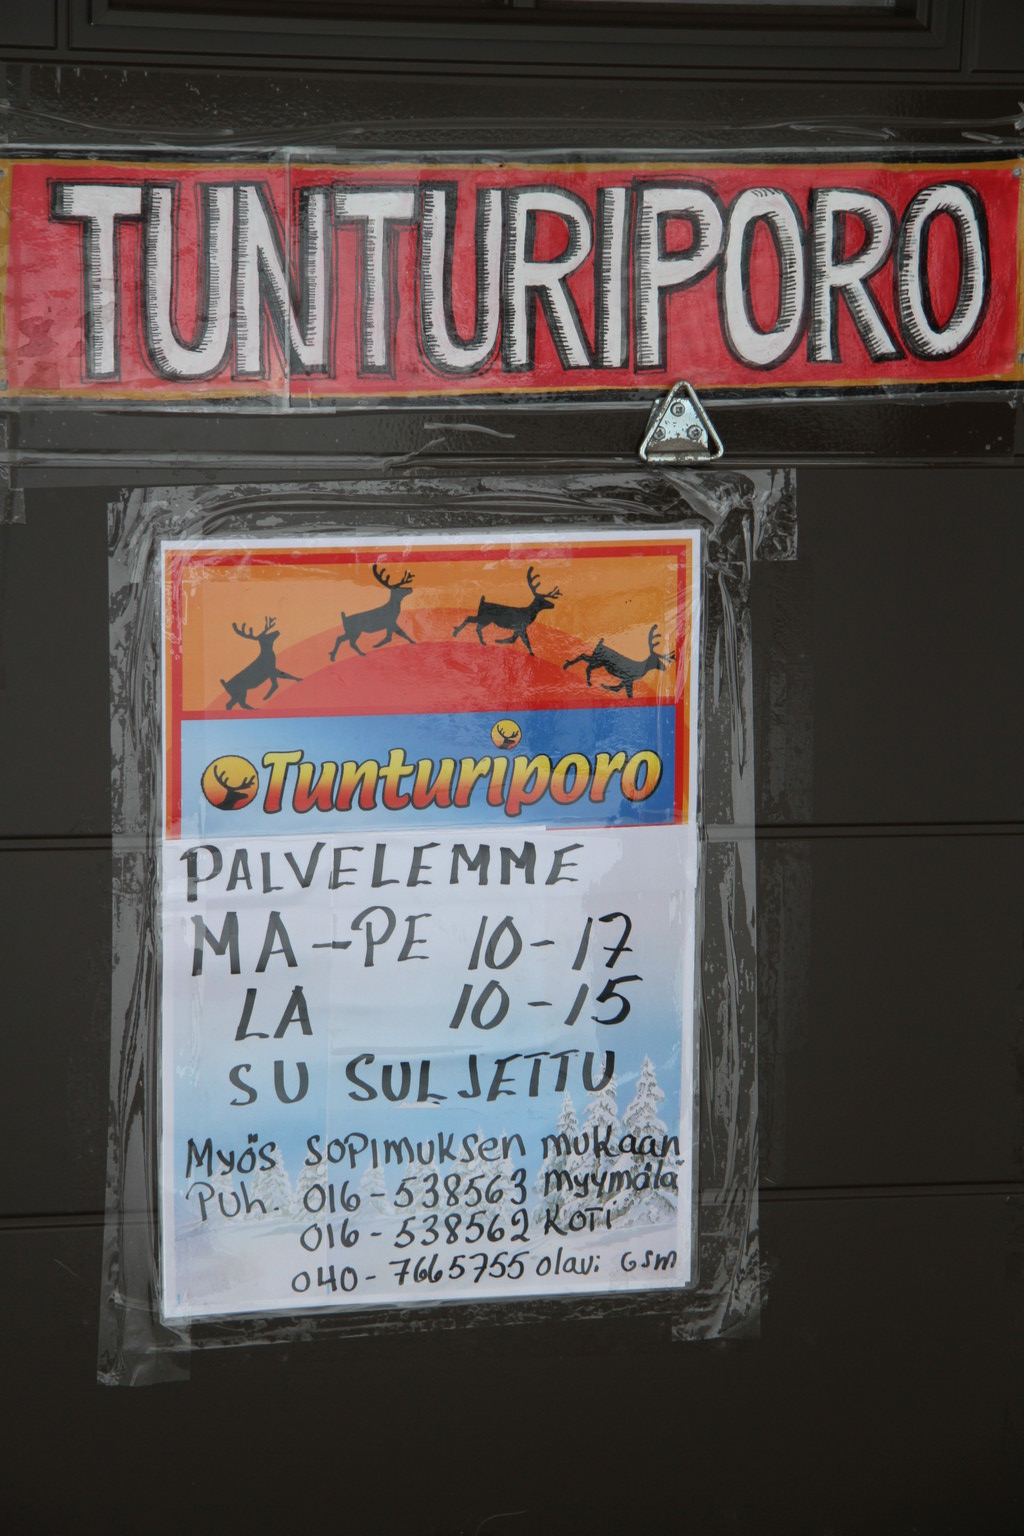 TUNTURIPORO
Tunturiporo
PALVELEMME
MA-PE 10-17
LA 10-15
SU SULJETTU
Myös sopimuksen mukaan
Puh. 016-538563 myymälä
016-538562 koti
040-7665755 olavi GSM